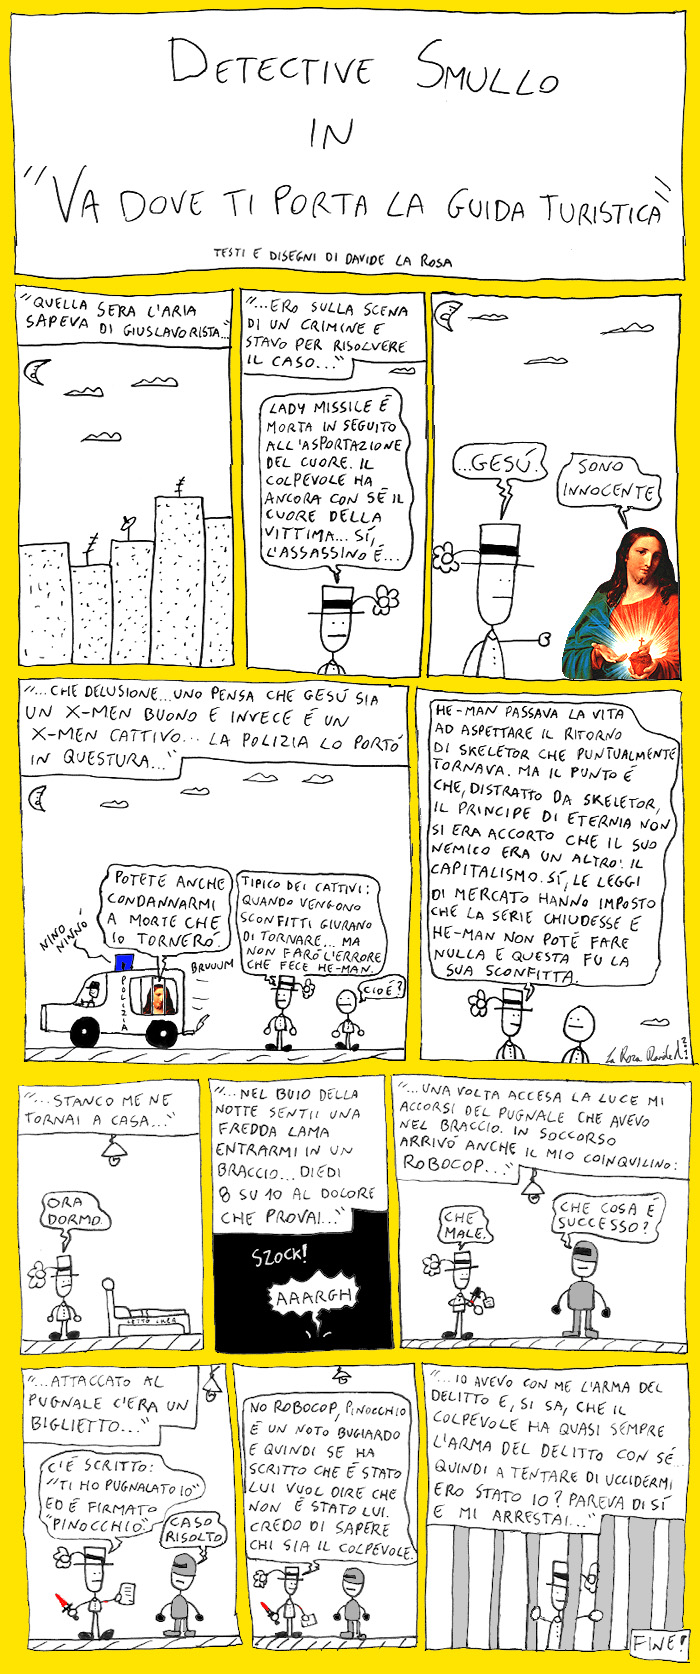 DETECTIVE SMULLO
IN
"VA DOVE TI PORTA LA GUIDA TURISTICA"
TESTI E DISEGNI DI DAVIDE LA ROSA
"QUELLA SERA L'ARIA
SAPEVA DI GIUSLAVORISTA..."
"...ERO SULLA SCENA
DI UN CRIMINE E
STAVO PER RISOLVERE
IL CASO..."
LADY MISSILE É
MORTA IN SEGUITO
ALL'ASPORTAZIONE
DEL CUORE. IL
COLPEVOLE HA
ANCORA CON SÉ IL
CUORE DELLA
VITTIMA... SÍ,
L'ASSASSINO É...
...GESÚ.
SONO
INNOCENTE
"...CHE DELUSIONE... UNO PENSA CHE GESÚ SIA
UN X-MEN BUONO E INVECE É UN
X-MEN CATTIVO... LA POLIZIA LO PORTÓ
IN QUESTURA..."
NINO
NINNÓ
POTETE ANCHE
CONDANNARMI
A MORTE CHE
IO TORNERÓ.
BRUUUM
POLIZIA
TIPICO DEI CATTIVI:
QUANDO VENGONO
SCONFITTI GIURANO
DI TORNARE... MA
NON FARÓ L'ERRORE
CHE FECE HE-MAN.
CIOÉ?
HE-MAN PASSAVA LA VITA
AD ASPETTARE IL RITORNO
DI SKELETOR CHE PUNTUALMENTE
TORNAVA. MA IL PUNTO É
CHE, DISTRATTO DA SKELETOR,
IL PRINCIPE DI ETERNIA NON
SI ERA ACCORTO CHE IL SUO
NEMICO ERA UN ALTRO: IL
CAPITALISMO. SÍ, LE LEGGI
DI MERCATO HANNO IMPOSTO
CHE LA SERIE CHIUDESSE E
HE-MAN NON POTÉ FARE
NULLA E QUESTA FU LA
SUA SCONFITTA.
La Rosa Davide
"...STANCO ME NE
TORNAI A CASA..."
ORA
DORMO.
LETTO
"...NEL BUIO DELLA
NOTTE SENTII UNA
FREDDA LAMA
ENTRARMI IN UN
BRACCIO... DIEDI
8 SU 10 AL DOLORE
CHE PROVAI..."
SZOCK!
AAARGH
"...UNA VOLTA ACCESA LA LUCE MI
ACCORSI DEL PUGNALE CHE AVEVO
NEL BRACCIO. IN SOCCORSO
ARRIVÓ ANCHE IL MIO COINQUILINO:
ROBOCOP..."
CHE
MALE.
CHE COSA É
SUCCESSO?
"...ATTACCATO AL
PUGNALE C'ERA UN
BIGLIETTO..."
C'É SCRITTO:
"TI HO PUGNALATO IO"
ED É FIRMATO
"PINOCCHIO".
CASO
RISOLTO
NO ROBOCOP, PINOCCHIO
É UN NOTO BUGIARDO
E QUINDI SE HA
SCRITTO CHE É STATO
LUI VUOL DIRE CHE
NON É STATO LUI.
CREDO DI SAPERE
CHI SIA IL COLPEVOLE.
"...IO AVEVO CON ME L'ARMA DEL
DELITTO E, SI SA, CHE IL
COLPEVOLE HA QUASI SEMPRE
L'ARMA DEL DELITTO CON SÉ...
QUINDI A TENTARE DI UCCIDERMI
ERO STATO IO? PAREVA DI SÍ
E MI ARRESTAI..."
FINE!